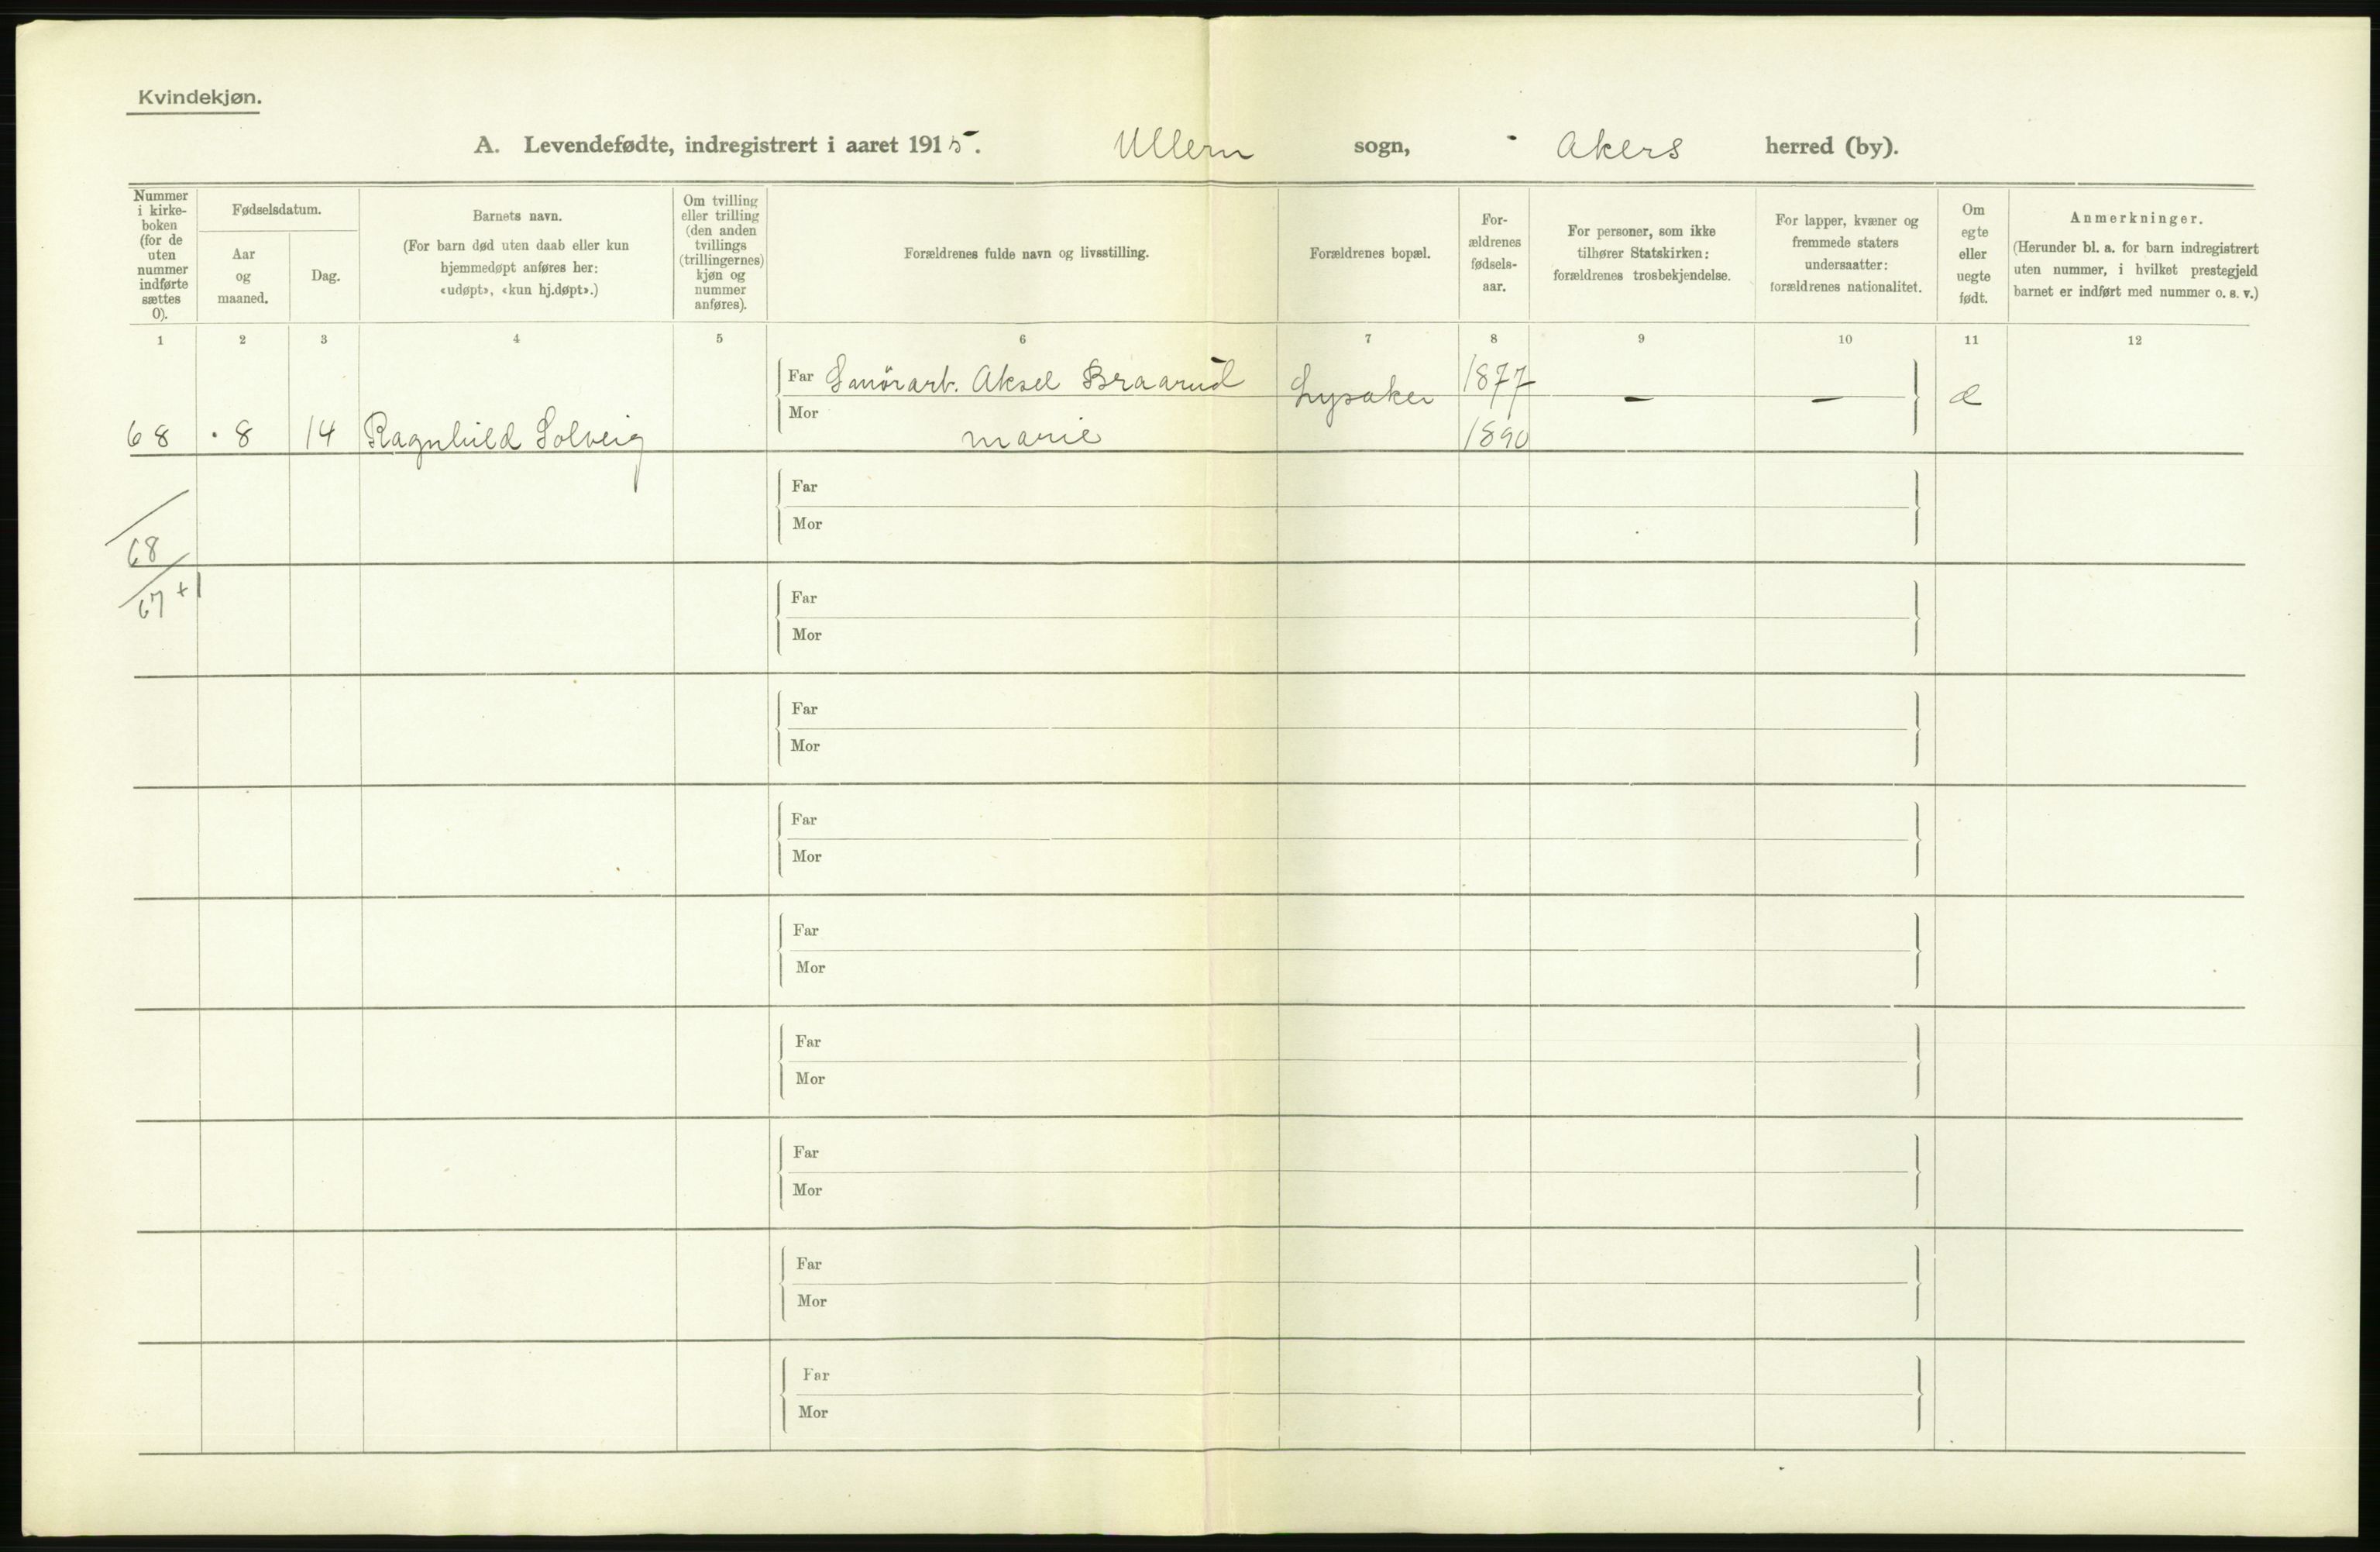 Kvindekjøn.
A. Levendefødte, indregistrert i aaret 1915. Ullern sogn, Akers herred (by).
Nummer i kirke- boken (for de uten nummer indførte sættes 0).
Fødselsdatum.
Aar og maaned.
Dag.
Barnets navn.
(For barn død uten daab eller kun hjemmedøpt anføres her: «udøpt», «kun hj.døpt».)
Om tvilling eller trilling (den anden tvillings (trillingernes) kjøn og nummer anføres).
Forældrenes fulde navn og livsstilling.
Forældrenes bopæl.
For- ældrenes fødsels- aar.
For personer, som ikke tilhører Statskirken: forældrenes trosbekjendelse.
For lapper, kvæner og fremmede staters undersaatter: forældrenes nationalitet.
Om egte eller uegte født.
Anmerkninger.
(Herunder bl. a. for barn indregistrert uten nummer, i hvilket prestegjeld barnet er indført med nummer o. s. v.)
1 2 3 4 5 6 7 8 9 10 11 12
Far Smörarb. Aksel Braarud Lysaker 1877 — — e
68 8 14 Ragnhild Solveig Mor Marie 1890
Far
Mor
68
67 + 1
Far
Mor
Far
Mor
Far
Mor
Far
Mor
Far
Mor
Far
Mor
Far
Mor
Far
Mor